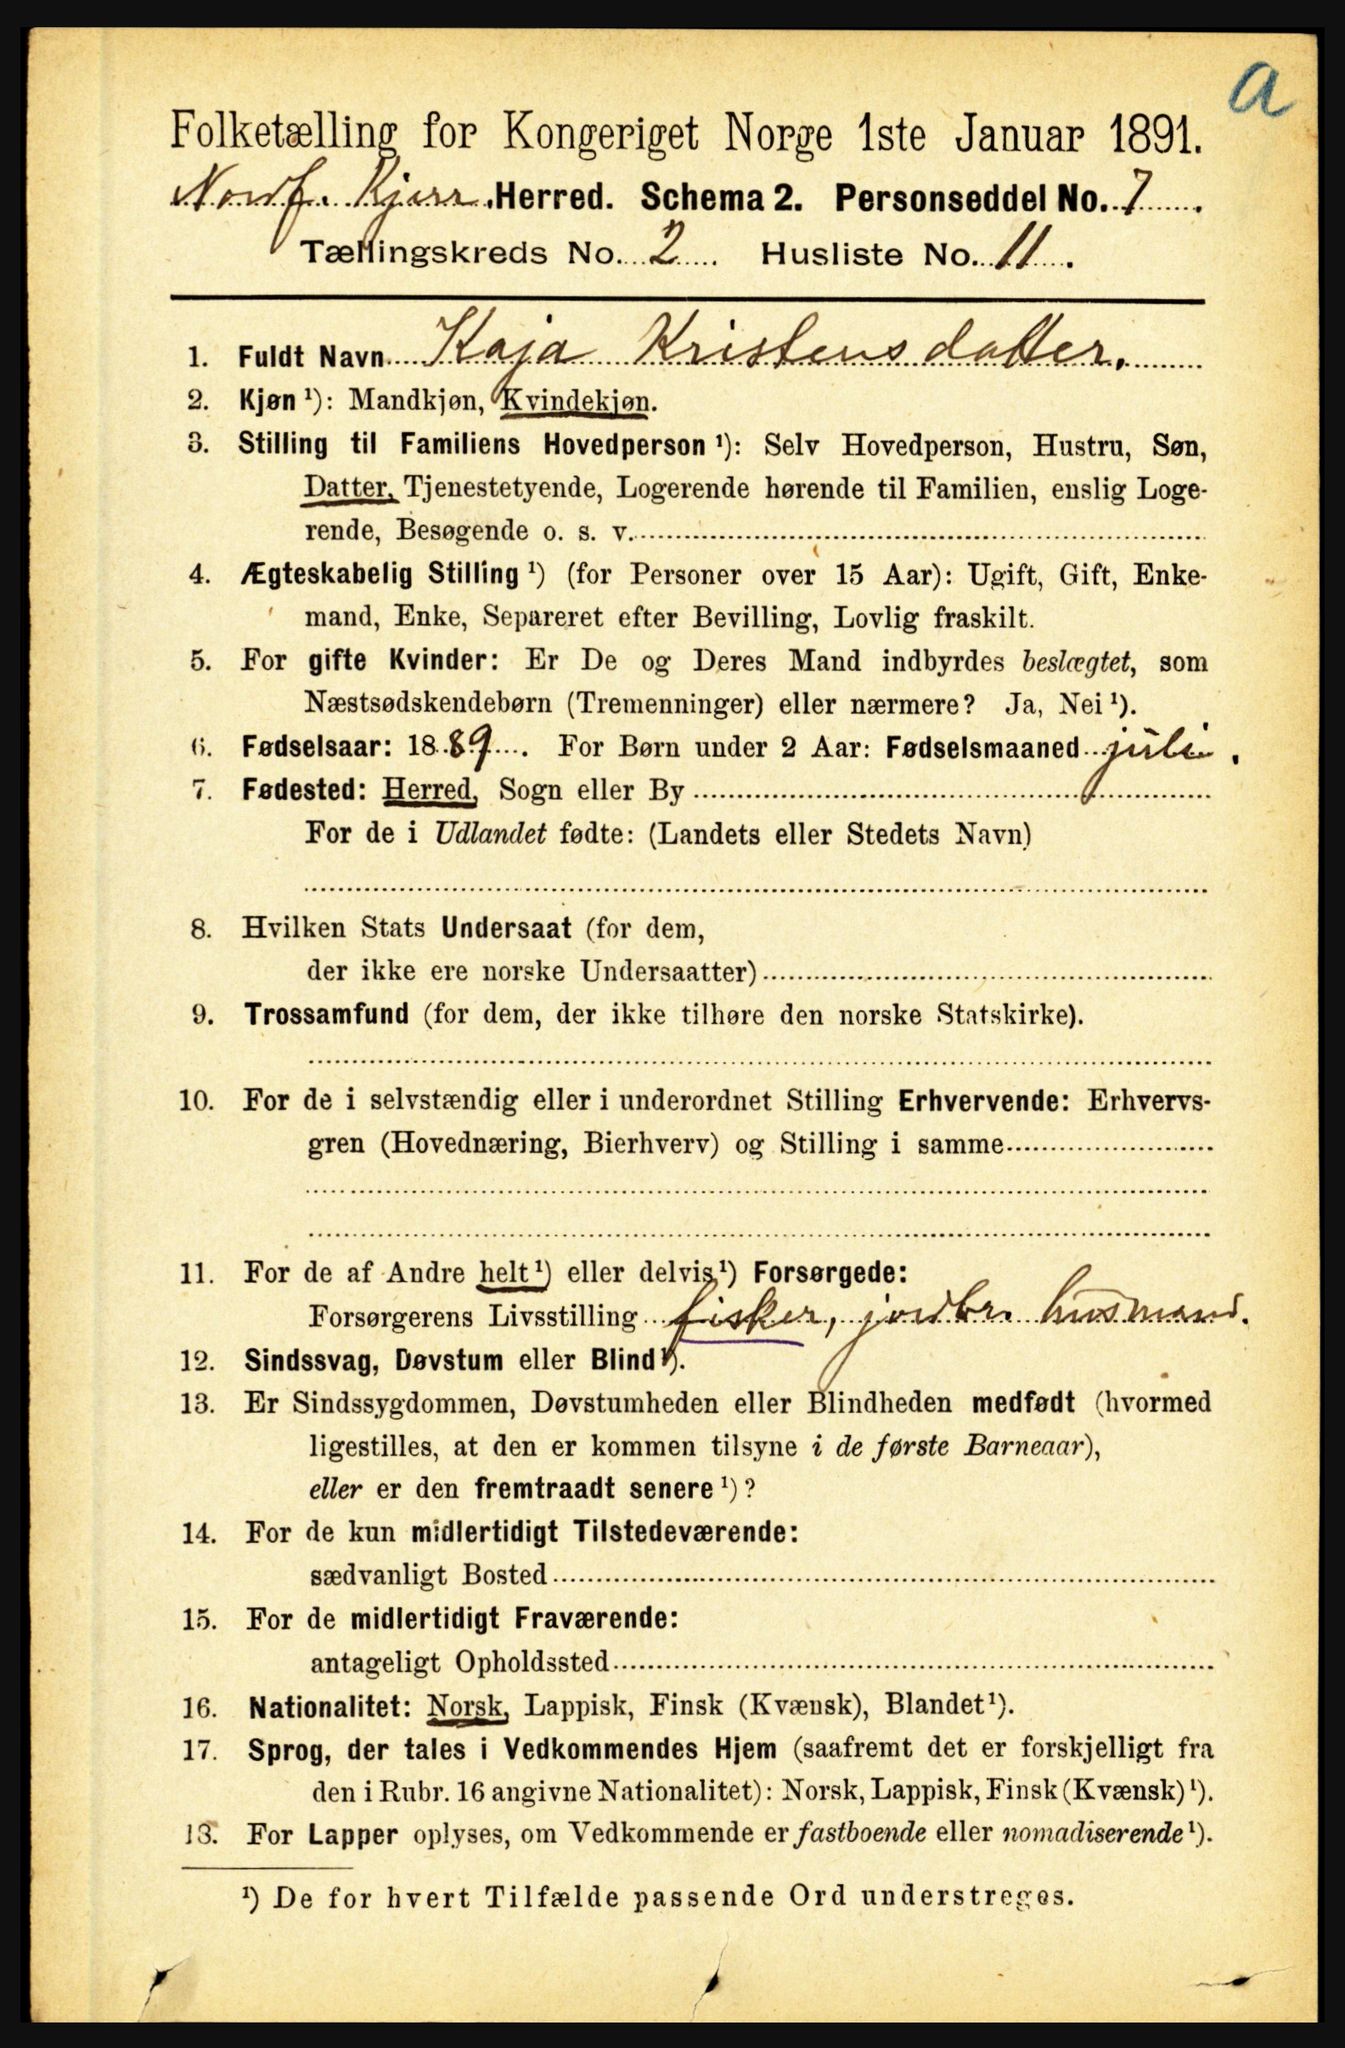 a
Folketælling for Kongeriget Norge 1ste Januar 1891.
Nordf. Kjerr. Herred. Schema 2. Personseddel No. 7.
Tællingskreds No. 2. Husliste No. 11.
1. Fuldt Navn Kaja Kristensdatter.
2. Kjøn ¹): Mandkjøn, Kvindekjøn.
3. Stilling til Familiens Hovedperson ¹): Selv Hovedperson, Hustru, Søn,
Datter, Tjenestetyende, Logerende hørende til Familien, enslig Loge-
rende, Besøgende o. s. v.
4. Ægteskabelig Stilling ¹) (for Personer over 15 Aar): Ugift, Gift, Enke-
mand, Enke, Separeret efter Bevilling, Lovlig fraskilt.
5. For gifte Kvinder: Er De og Deres Mand indbyrdes beslægtet, som
Næstsødskendebørn (Tremenninger) eller nærmere? Ja, Nei ¹).
6. Fødselsaar: 1889. For Børn under 2 Aar: Fødselsmaaned juli.
7. Fødested: Herred, Sogn eller By
For de i Udlandet fødte: (Landets eller Stedets Navn)
8. Hvilken Stats Undersaat (for dem,
der ikke ere norske Undersaatter)
9. Trossamfund (for dem, der ikke tilhøre den norske Statskirke).
10. For de i selvstændig eller i underordnet Stilling Erhvervende: Erhvervs-
gren (Hovednæring, Bierhverv) og Stilling i samme
11. For de af Andre helt ¹) eller delvis ¹) Forsørgede:
Forsørgerens Livsstilling fisker, jordbr. husmand.
12. Sindssvag, Døvstum eller Blind ¹).
13. Er Sindssygdommen, Døvstumheden eller Blindheden medfødt (hvormed
ligestilles, at den er kommen tilsyne i de første Barneaar),
eller er den fremtraadt senere ¹)?
14. For de kun midlertidigt Tilstedeværende:
sædvanligt Bosted
15. For de midlertidigt Fraværende:
antageligt Opholdssted
16. Nationalitet: Norsk, Lappisk, Finsk (Kvænsk), Blandet ¹).
17. Sprog, der tales i Vedkommendes Hjem (saafremt det er forskjelligt fra
den i Rubr. 16 angivne Nationalitet): Norsk, Lappisk, Finsk (Kvænsk) ¹).
18. For Lapper oplyses, om Vedkommende er fastboende eller nomadiserende ¹).
¹) De for hvert Tilfælde passende Ord understreges.